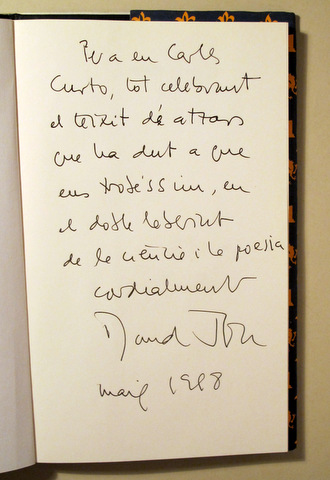 Per a en Carles
Curto, tot celebrant
el teixit de atzars
que ha dut a que
ens trobéssim, en
el doble laberint
de la ciència i la poesia
cordialment
David Jou
maig 1998